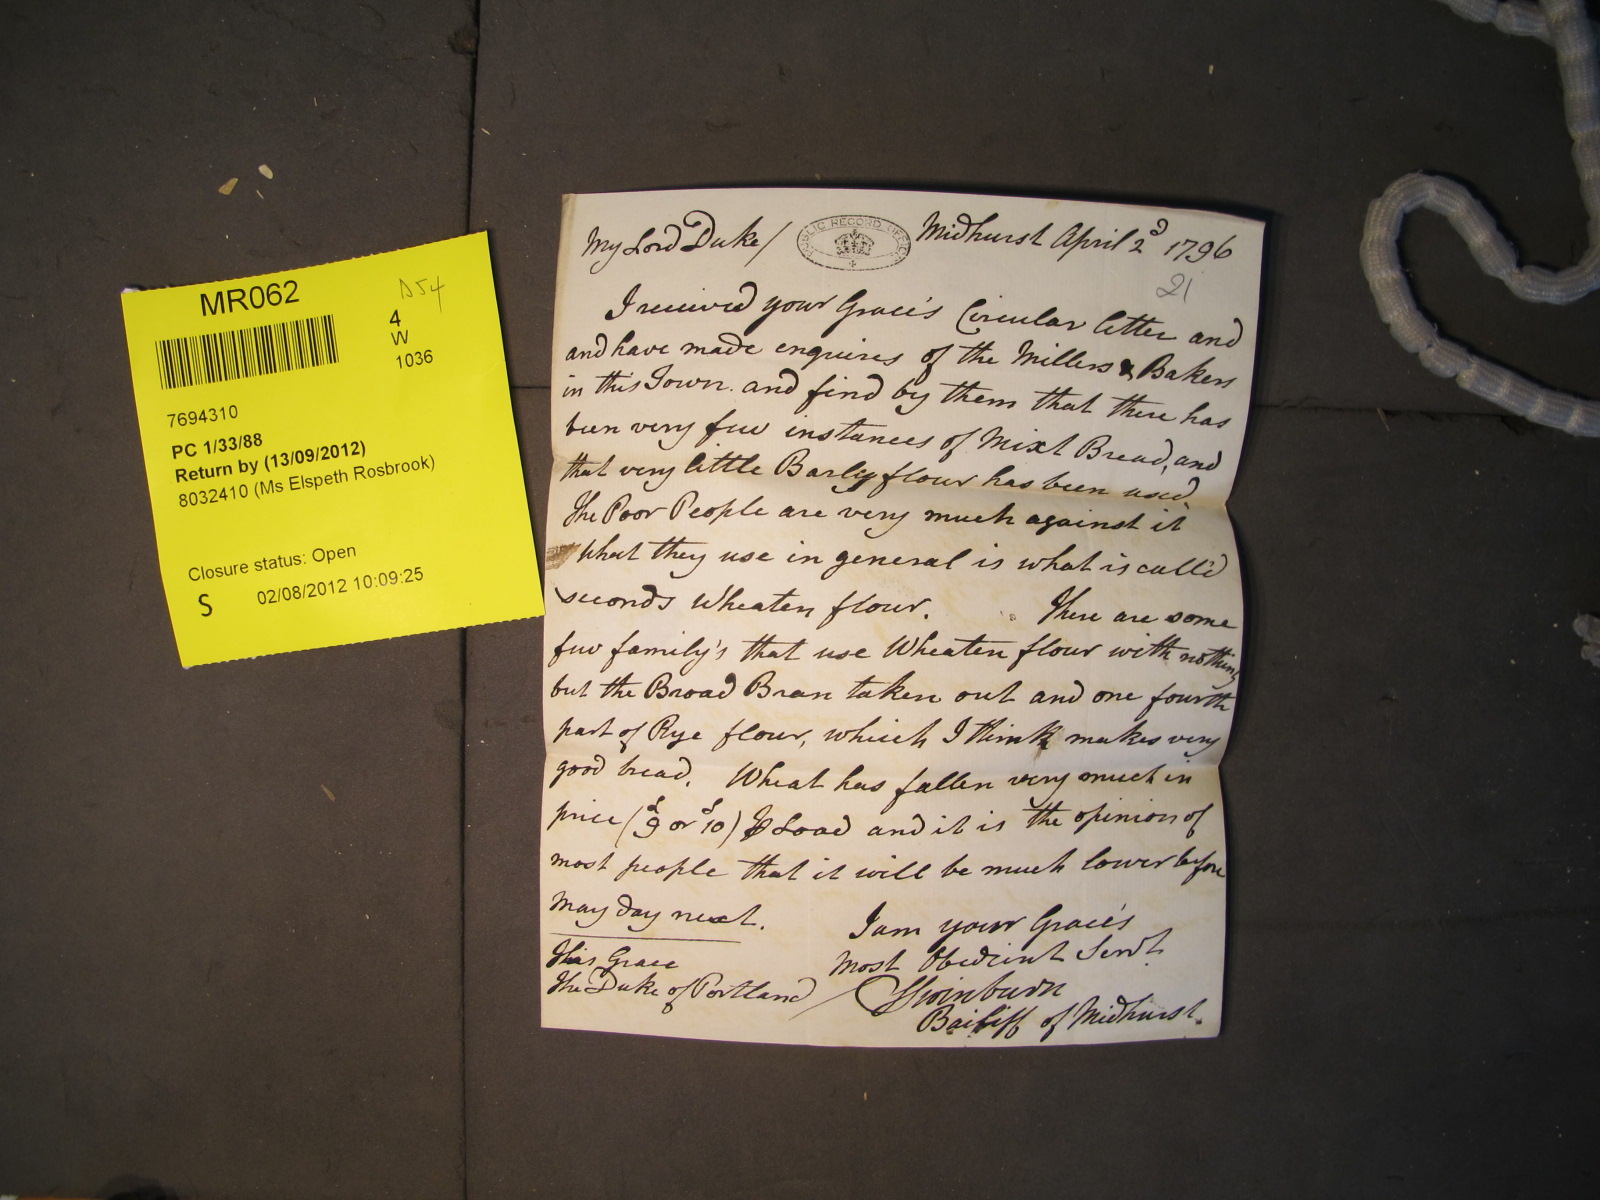 MR062
D54
4
W
1036
7694310
PC 1/33/88
Return by (13/09/2012)
8032410 (Ms Elspeth Rosbrook)
Closure status: Open
S 02/08/2012 10:09:25
My Lord Duke/ PUBLIC RECORD OFFICE Midhurst April 2d 1796
21
I received your Grace's Circular letter and
and have made enquires of the Millers & Bakers
in this Town. and find by them that there has
been very few instances of Mixt Bread, and
that very little Barly flour has been used
The Poor People are very much against it
What they use in general is what is call'd
seconds Wheaten flour. There are some
few family's that use Wheaten flour with nothing
but the Broad Bran taken out and one fourth
part of Rye flour, which I think makes very
good bread. Wheat has fallen very much in
price (£9 or £10) P Load and it is the opinion of
most people that it will be much lower before
May day next.
I am your Grace's
Most Obedient Servt
His Grace
The Duke of Portland / Swinburn
Bailiff of Midhurst.